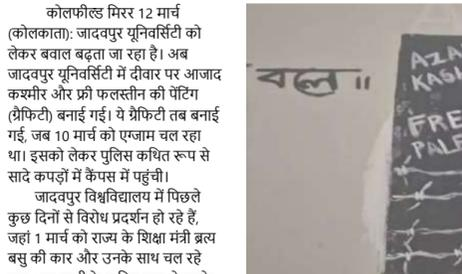 कोलफील्ड मिरर 12 मार्च
(कोलकाता): जादवपुर यूनिवर्सिटी को
लेकर बवाल बढ़ता जा रहा है। अब
जादवपुर यूनिवर्सिटी में दीवार पर आजाद
कश्मीर और फ्री फलस्तीन की पेंटिंग
(ग्रैफिटी) बनाई गई। ये ग्रैफिटी तब बनाई
गई, जब 10 मार्च को एग्जाम चल रहा
था। इसको लेकर पुलिस कथित रूप से
सादे कपड़ों में कैंपस में पहुंची।
जादवपुर विश्वविद्यालय में पिछले
कुछ दिनों से विरोध प्रदर्शन हो रहे हैं,
जहां 1 मार्च को राज्य के शिक्षा मंत्री ब्रत्य
बसु की कार और उनके साथ चल रहे
AZA
KASH
FREE
PALE